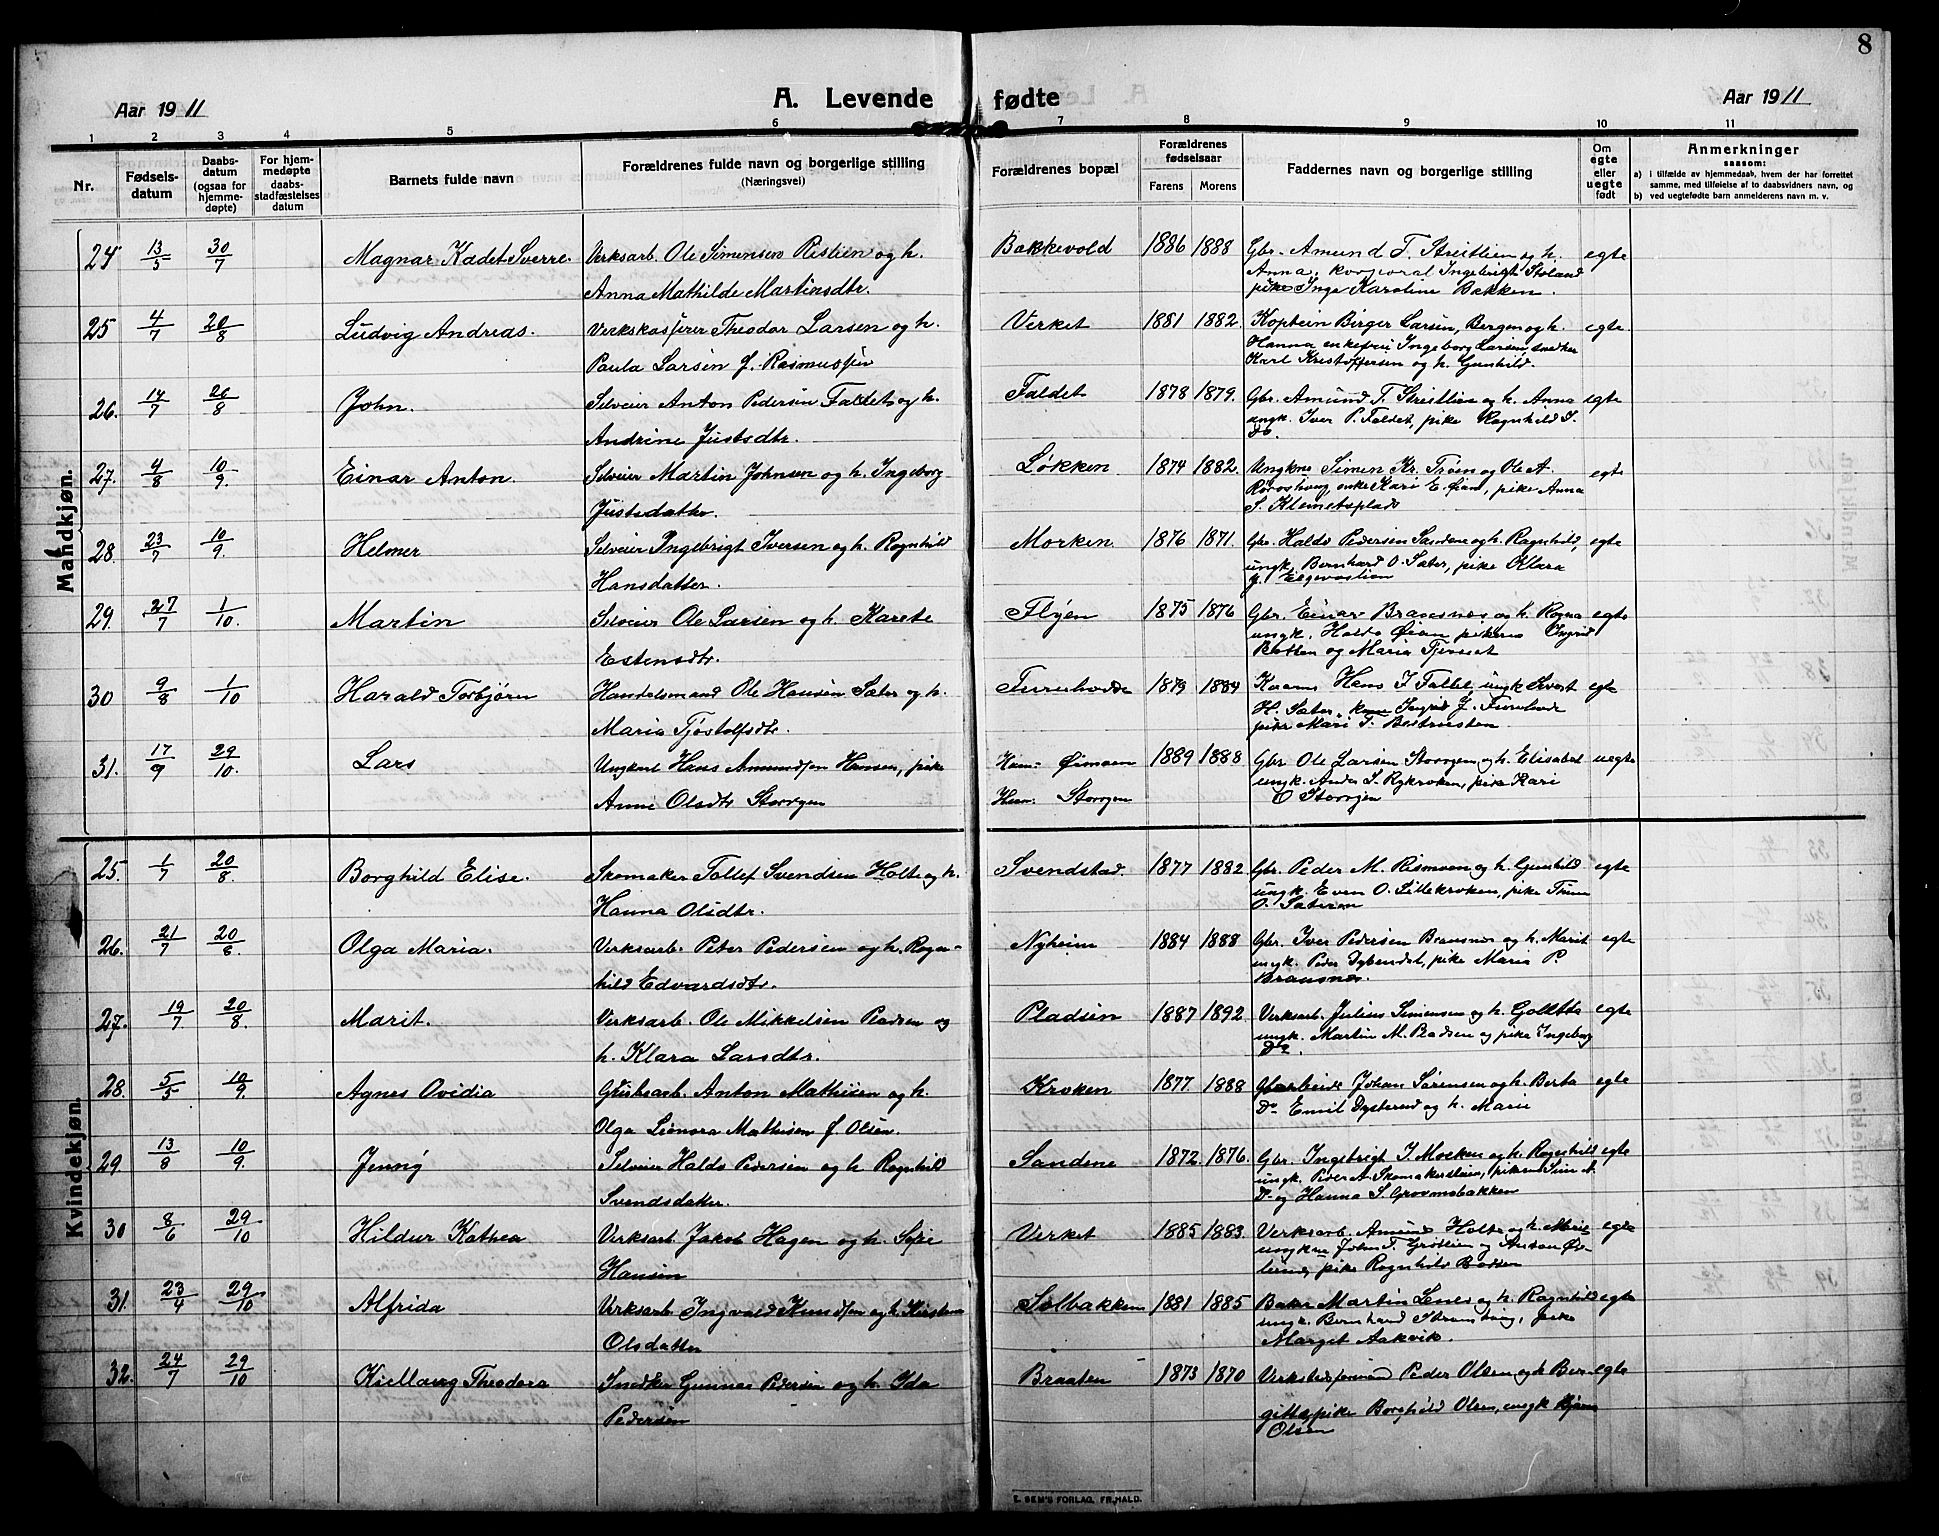 8
Aar 1911
A. Levende fødte
Aar 1911
1 2 3 4 5 6 7 8 9 10 11
Nr.
Fødselsdatum
Daabsdatum (ogsaa for hjemmedøpte)
For hjemmedøpte daabsstadfæstelses datum
Barnets fulde navn
Forældrenes fulde navn og borgerlige stilling (Næringsvei)
Forældrenes bopæl
Forældrenes fødselsaar
Farens Morens
Faddernes navn og borgerlige stilling
Om egte eller uegte født
Anmerkninger
saasom:
a) i tilfælde av hjemmedaab, hvem der har forrettet samme, med tilføielse af to daabsvidners navn, og
b) ved uegtefødte barn anmelderens navn m. v.
Mandkjøn.
24 13/5 30/7 Magnar Kadet Sverre. Verksarb. Ole Simensen og h. Bakkevold 1886 1888 Gbr. Amund T. Streitlien og h. egte
Anna Mathilde Martinsdtr. Anna, korporal Ingebrigt
pike Inga Karoline Bakken.
25 4/7 20/8 Ludvig Andreas. Verkskasserer Theodor Larsen og h. Verket 1881 1882. Kaptein Birger Larsen, Bergen og h. egte
Paula Larsen f. Rasmussen Hanna enkefru Ingeborg Larsen, snedker
Karl Kristoffersen og h. Gunhild.
26. 14/7 20/8 John. Selveier Anton Pedersen Faldet og h. Faldet 1878 1879. Gbr. Amund T. Streitlien og h. Anna egte
Andrine Justsdtr. ungk. Iver P. Faldet, pike Ragnhild I.
Do.
27. 4/8 10/9. Einar Anton. Selveier Martin Johnsen og h. Ingeborg Løkken 1874 1882. Ungkne Simen Kr. Trøen og Ole A. egte
Justsdatter. enke Kari E. Øian, pike Anna
S. Klemetsplads
28. 23/7 10/9. Helmer Selveier Ingebrigt Iversen og h. Ragnhild Morken. 1876 1871. Gbr. Haldo Pedersen Sandene og h. Ragnhild, egte
Hansdatter. ungk. Bernhard O. Sæter, pike Klara
29. 27/7 1/10. Martin Selveier Ole Larsen og h. Karete Flyen 1875 1876 Gbr. Einar Bransnes og h. Ragna egte
Estensdtr. ungk. Haldo Øian pikerne Ingrid
Bakken og Maria
30 9/8 1/10 Harald Torbjørn Handelsmand Ole Hansen Sæter og h. Furuhovde 1879 1884 Hans J. Fallet, ungk egte
Maria Tjøstolfsdtr. H. Sæter, Ingrid J. Furuhovde
pike Mari T.
31. 17/9 29/10. Lars Ungkarl Hans Amundsen Hansen, pike Ham: Øimoen 1889 1888 Gbr. Ole Larsen Storrøen og h. Elisabet uegte
Anne Olsdtr Storrøen Hun: Storrøen ungk. Anders S. Rykroken, pike Kari
O Storrøen
Kvindekjøn.
25. 1/7 20/8. Borghild Elise. Skomaker Tollef Svendsen Holte og h. Svendstad. 1877 1882. Gbr. Peder M. Rismoen og h. Gunhild egte
Hanna Olsdtr. ungk. Even O. Lillekroken, pike
O. Sæteren
26. 21/7 20/8. Olga Maria. Verksarb. Peter Pedersen og h. Ragn- Nyheim 1884 1888 Gbr. Iver Pedersen Bransnes og h. Marit egte
hild Edvardsdtr. ungk. Peder, pike Maria P.
Bransnes.
27. 19/7 20/8. Marit. Verksarb. Ole Mikkelsen Pladsen og Pladsen 1887 1892 Verksarb. Julius Simensen og h. egte
h. Klara Larsdtr. ungk. Martin M. Pladsen og pike Ingeborg
Do.
28. 5/5 10/9. Agnes Ovidia Grubearb. Anton Mathisen og h. Kroken 1877. 1888 Johan Sørensen og h. Berta egte
Olga Leonora Mathisen f. Olsen. Do Emil Dysterud og h. Marie
29 13/8 10/9. Jenny Selveier Haldo Pedersen og h Ragnhild Sandene 1872. 1876. Gbr. Ingebrigt I. Morken og h. Ragnhild egte
Svendsdatter. ungk. Peder A. Skomakerstuen, pikerne
Do og Hanna S. Grovmobakken
30 8/6 29/10 Hildur Kathea Verksarb. Jakob Hagen og h. Sofie Verket 1885 1883. Verksarb. Amund Holte og h. egte
Hansen ungkne John T. Grøtlien og Anton
pike Ragnhild
31. 23/4 29/10 Alfrida Verksarb Ingvald Knudsen og h. Solbakken 1881 1885 Baker Martin og h. Ragnhild egte
Olsdatter ungk. Bernhard, pike
Margit Aakvik.
32. 24/7 29/10 Theodora Snedker Gunnar Pedersen og h. Ida Braaten 1873 1870 Peder Olsen og h Ber- egte
Pedersen gitte, pike Borghild Olsen, ungk
Olsen
E. SEM'S FORLAG, FR.HALD.